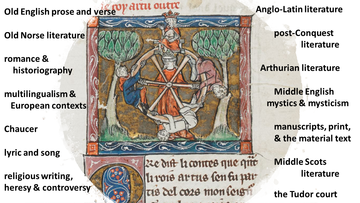 roy artu outre
Old English prose and verse
Old Norse literature
romance &
historiography
multilingualism &
European contexts
Chaucer
lyric and song
religious writing,
heresy & controversy
Anglo-Latin literature
post-Conquest
literature
Arthurian literature
Middle English
mystics & mysticism
manuscripts, print,
& the material text
Middle Scots
literature
the Tudor court
Re dist li contes que quāt
li rois artus sen fu par
tis del cors mon seig